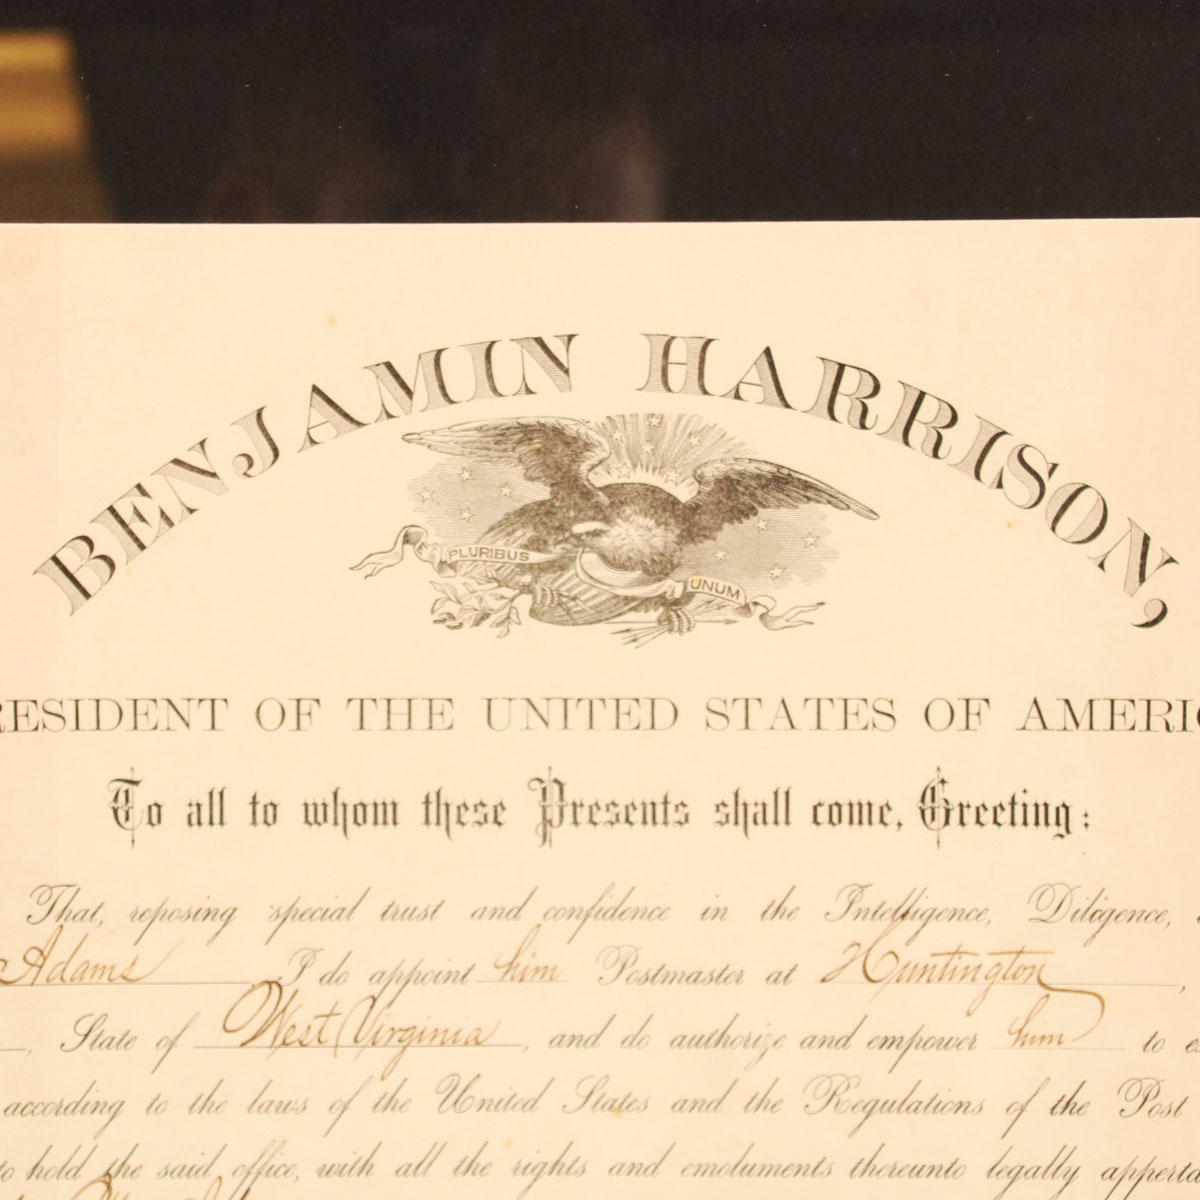 BENJAMIN HARRISON,
E PLURIBUS UNUM
RESIDENT OF THE UNITED STATES OF AMERIC
To all to whom these Presents shall come, Greeting:
That, reposing special trust and confidence in the Intelligence, Diligence,
Adams, I do appoint him Postmaster at Huntington,
, State of West Virginia, and do authorize and empower him to e
according to the laws of the United States and the Regulations of the Post
to hold the said office, with all the rights and emoluments thereunto legally apperta